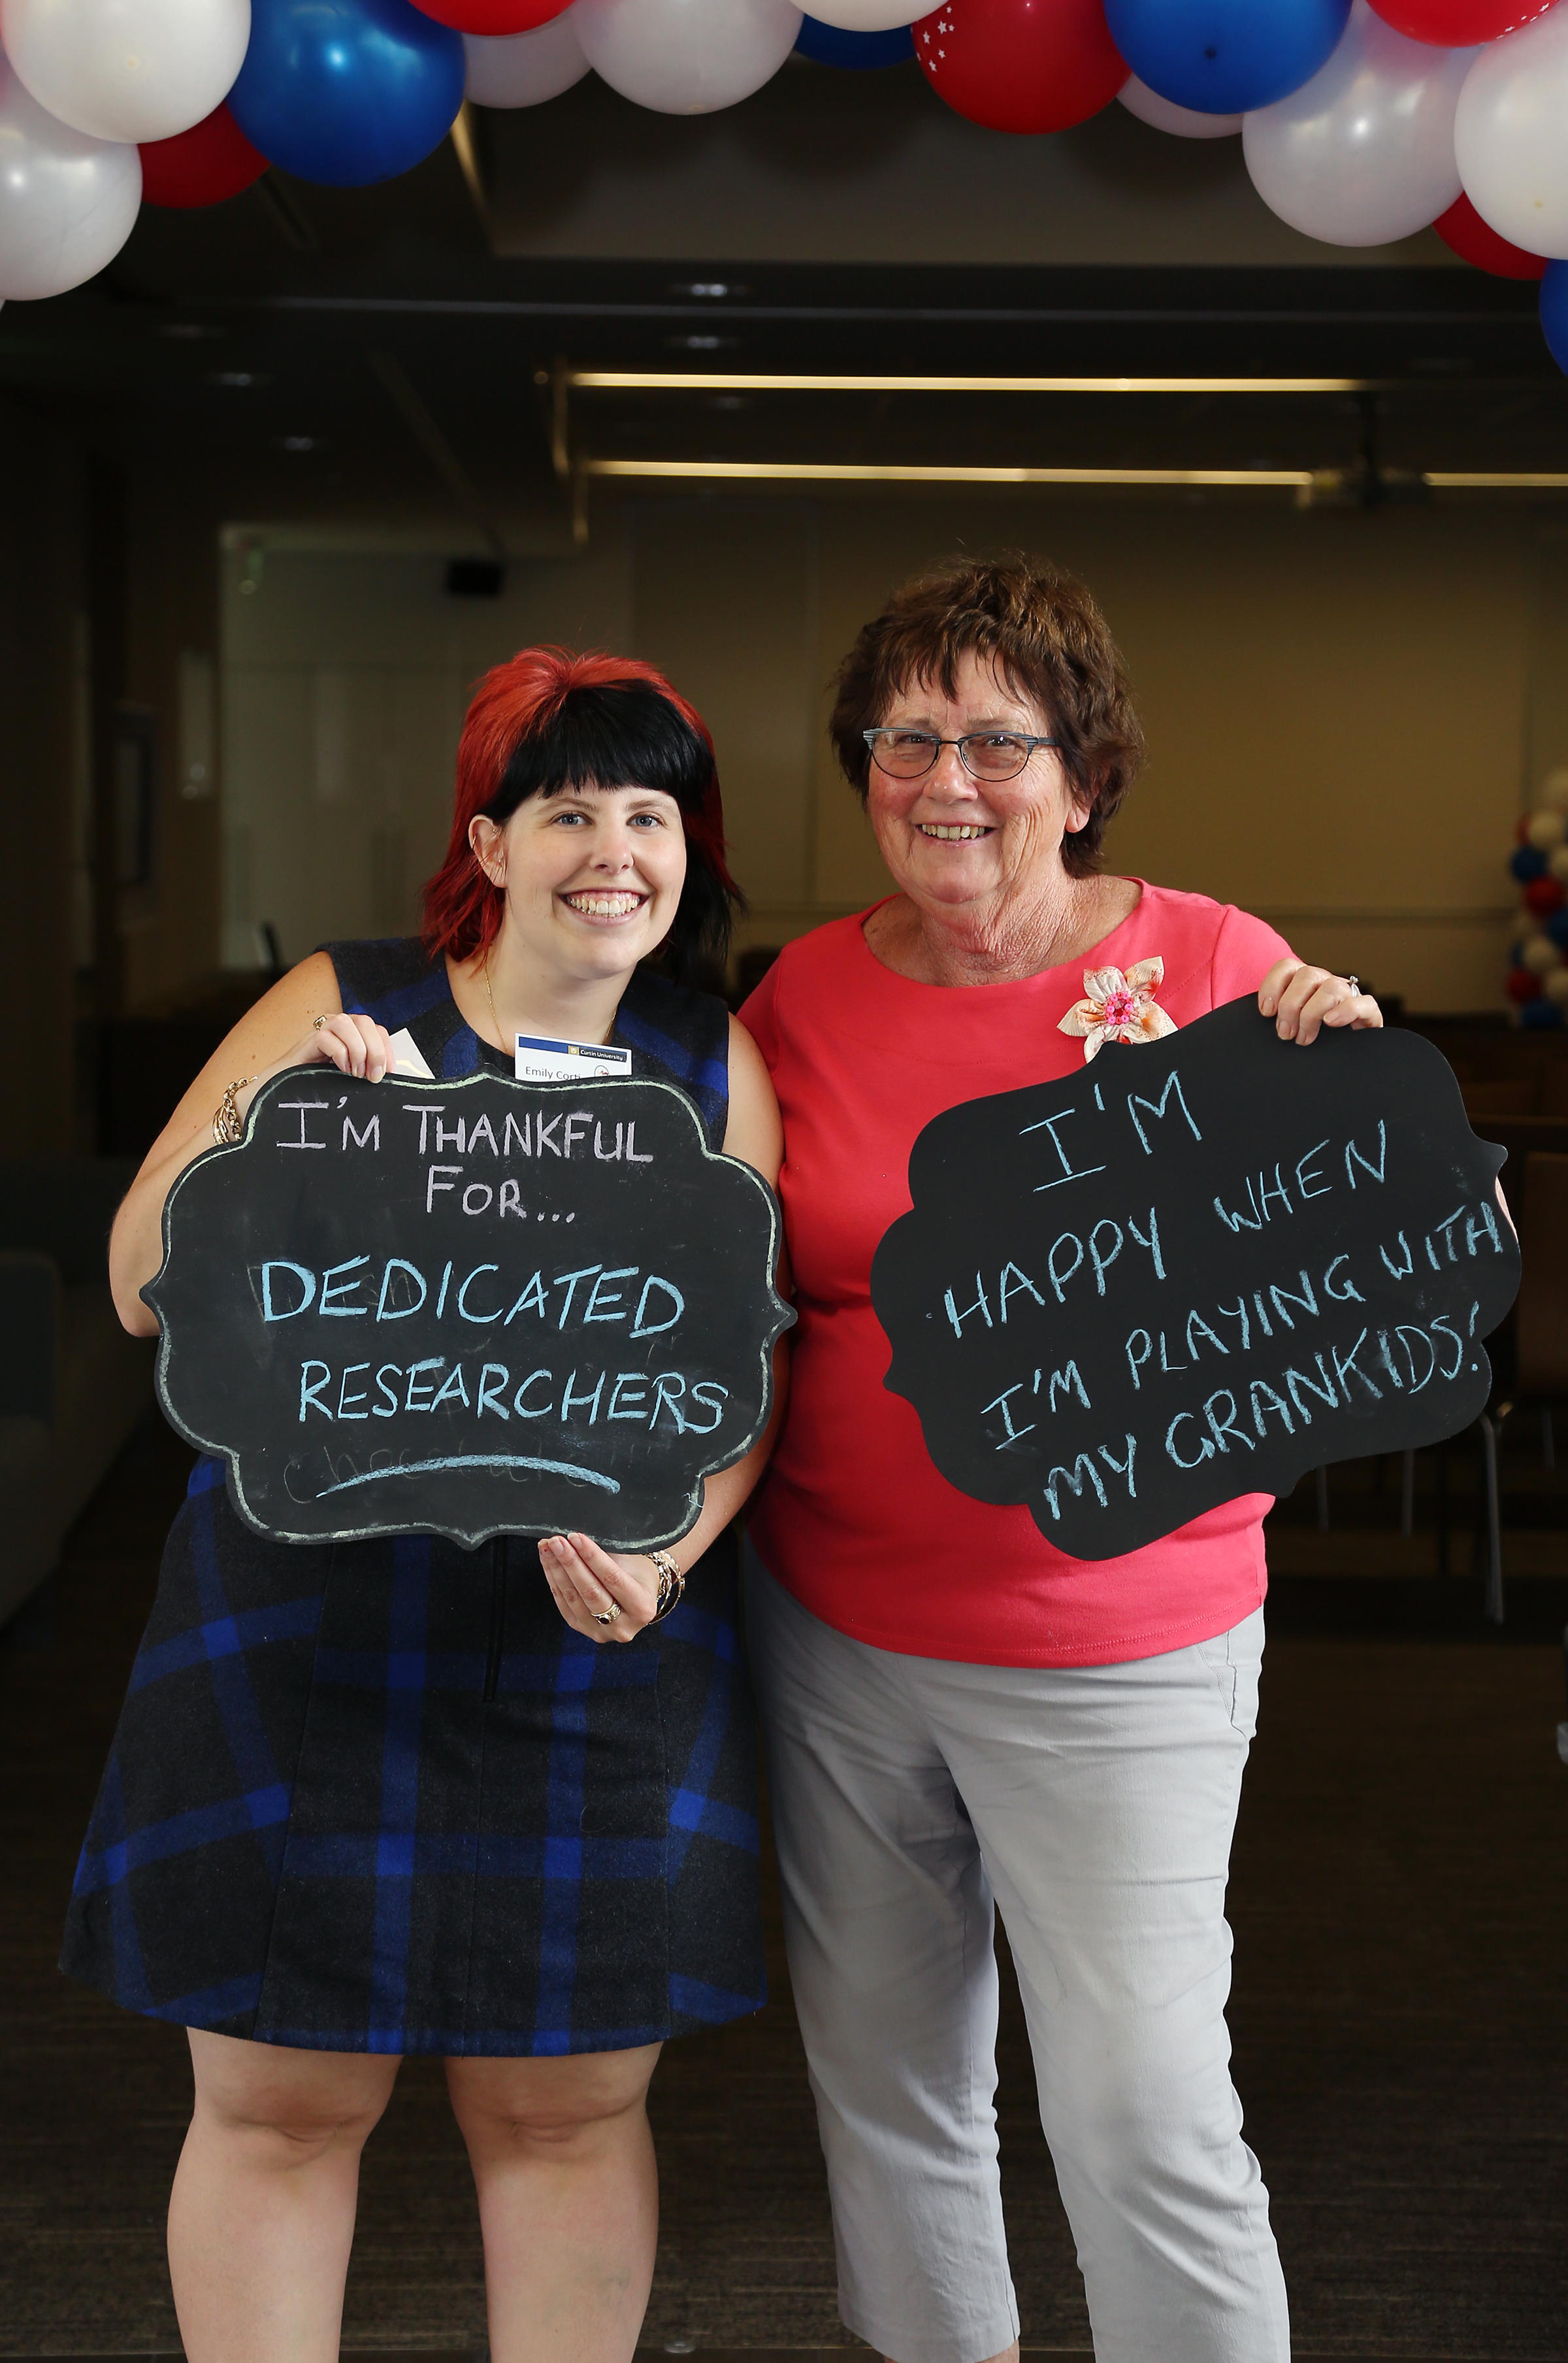 Curtin University
Emily Corti
I'M THANKFUL
FOR...
DEDICATED
RESEARCHERS
chocolate
I'M
HAPPY WHEN
I'M PLAYING WITH
MY GRANKIDS!